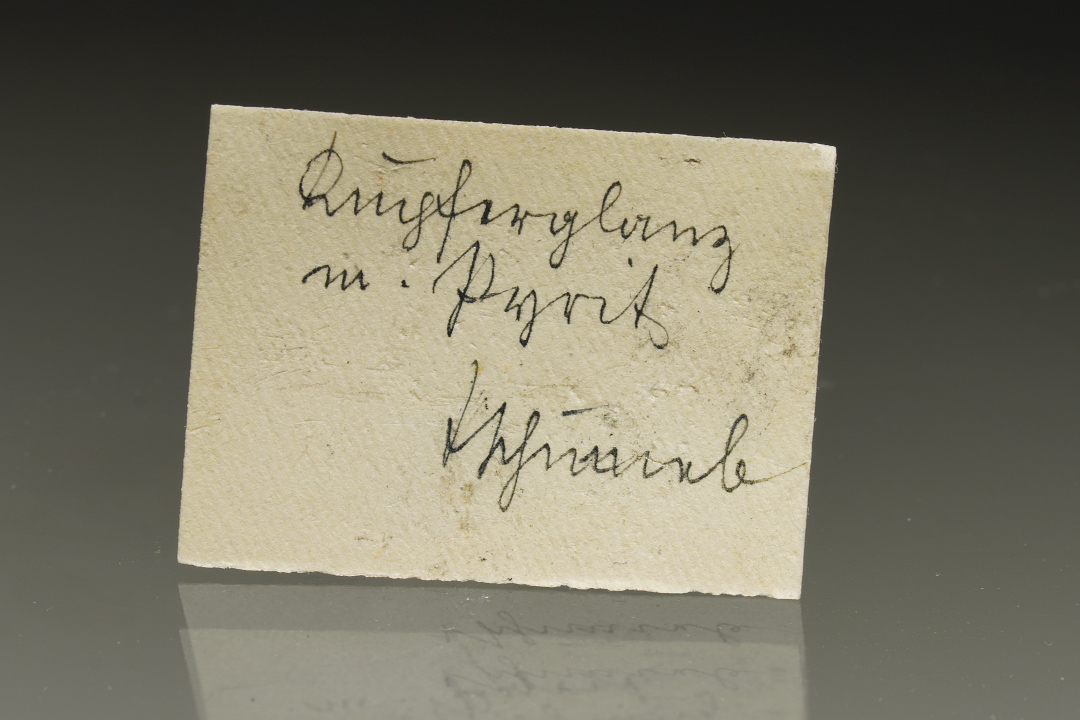 Kupferglanz
m. Pyrit
Tschumeb